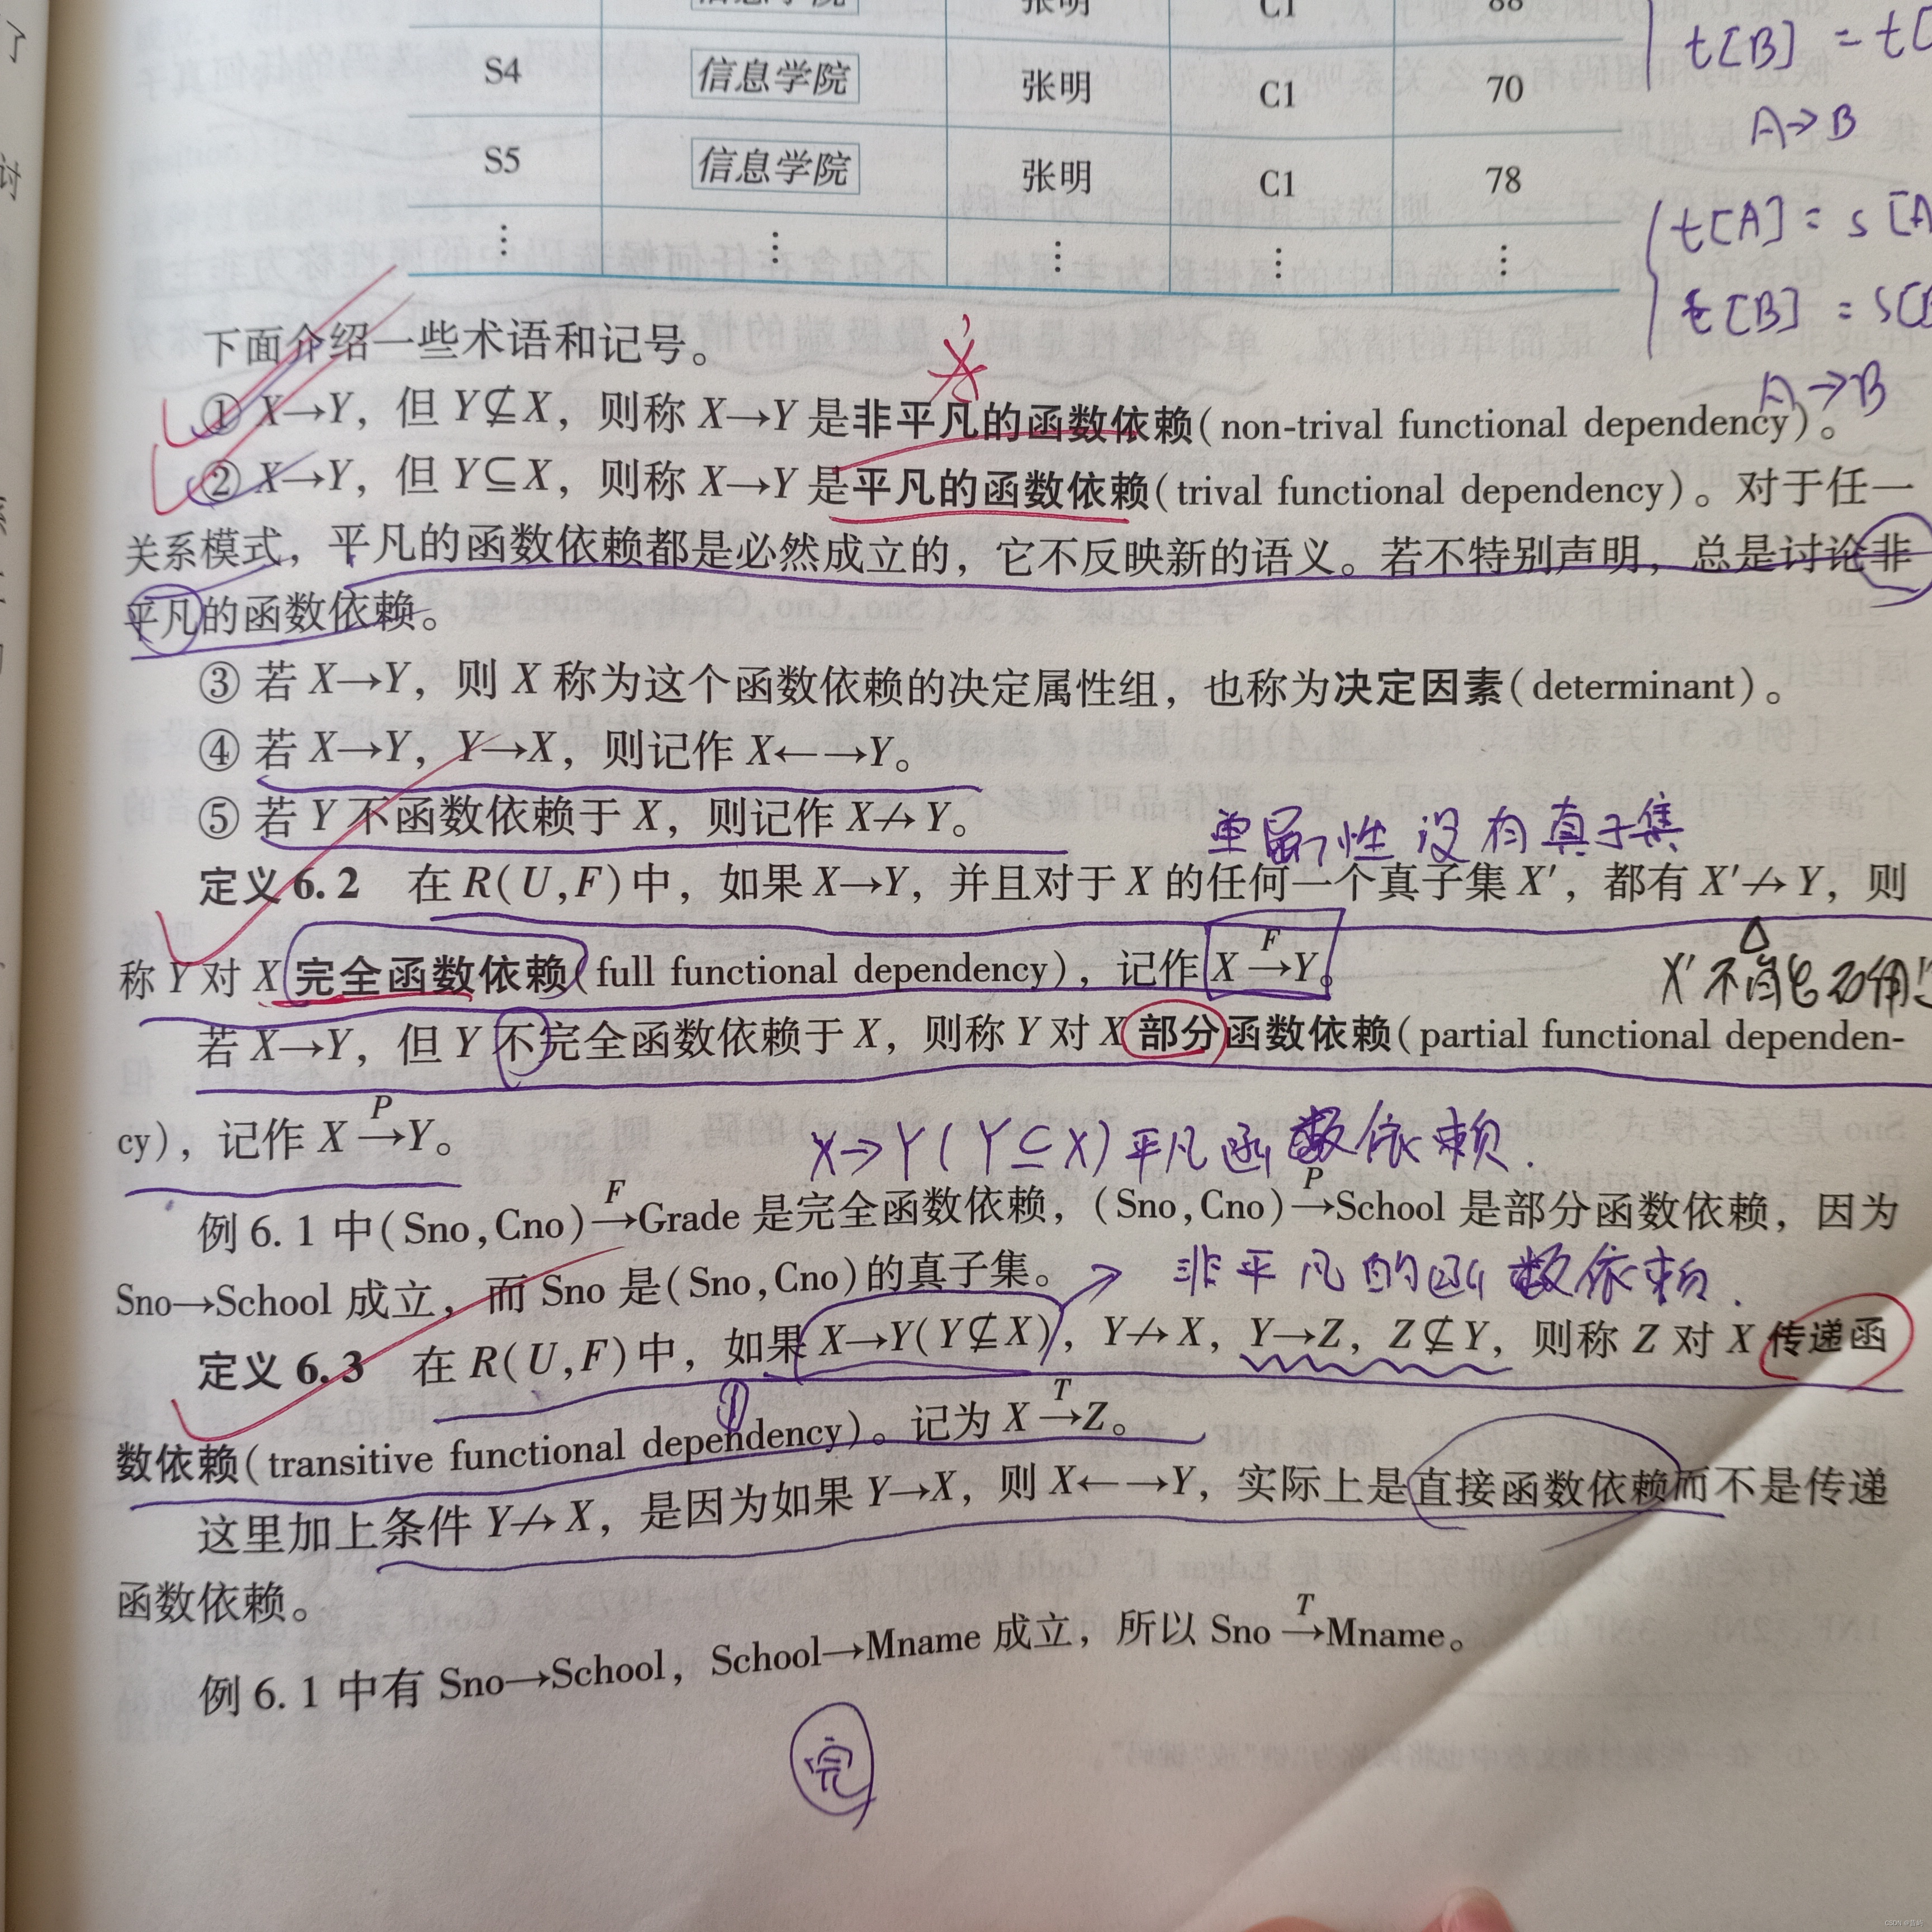 信息学院 张明 C1 88
t[B] = t[
S4 信息学院 张明 C1 70
A→B
S5 信息学院 张明 C1 78
t[A] = s[A
⋮ ⋮ ⋮ ⋮ ⋮
t[B] = s[B
下面介绍一些术语和记号。
A→B
① X→Y，但 Y⊈X，则称 X→Y 是非平凡的函数依赖(non-trival functional dependency)。
② X→Y，但 Y⊆X，则称 X→Y 是平凡的函数依赖(trival functional dependency)。对于任一
关系模式，平凡的函数依赖都是必然成立的，它不反映新的语义。若不特别声明，总是讨论非
平凡的函数依赖。
③ 若 X→Y，则 X 称为这个函数依赖的决定属性组，也称为决定因素(determinant)。
④ 若 X→Y，Y→X，则记作 X←→Y。
⑤ 若 Y 不函数依赖于 X，则记作 X↛Y。
单属性没有真子集
定义 6.2 在 R(U,F)中，如果 X→Y，并且对于 X 的任何一个真子集 X′，都有 X′↛Y，则
称 Y 对 X 完全函数依赖(full functional dependency)，记作 X F→Y。
X′不能
若 X→Y，但 Y 不完全函数依赖于 X，则称 Y 对 X 部分函数依赖(partial functional dependen-
cy)，记作 X P→Y。
X→Y(Y⊆X)平凡函数依赖.
例 6.1 中(Sno,Cno)F→Grade 是完全函数依赖，(Sno,Cno)P→School 是部分函数依赖，因为
Sno→School 成立，而 Sno 是(Sno,Cno)的真子集。
→ 非平凡的函数依赖.
定义 6.3 在 R(U,F)中，如果 X→Y(Y⊈X)，Y↛X，Y→Z，Z⊈Y，则称 Z 对 X 传递函
①
数依赖(transitive functional dependency)。记为 X T→Z。
这里加上条件 Y↛X，是因为如果 Y→X，则 X←→Y，实际上是直接函数依赖而不是传递
函数依赖。
例 6.1 中有 Sno→School，School→Mname 成立，所以 Sno T→Mname。
完